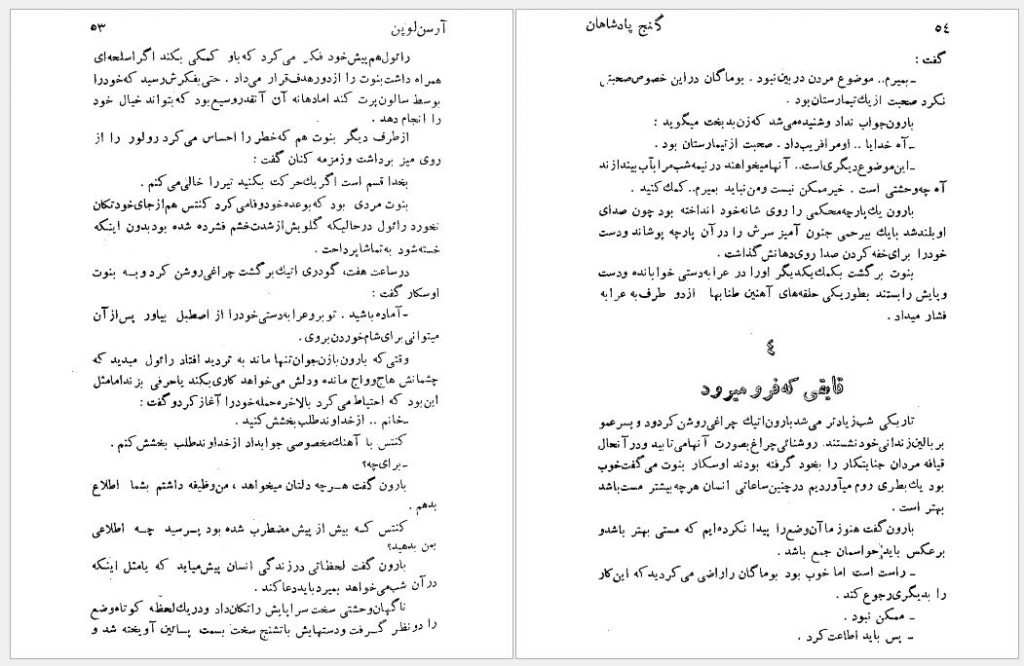 آرسن لوپن ۵۳
رائول هم پیش خود فکر می کرد که باو کمکی بکند اگر اسلحه ای
همراه داشت بنوت را از دور هدف قرار می داد . حتی بفکرش رسید که خود را
بوسط سالون پرت کند اما دهانه آن آنقدر وسیع بود که بتواند خیال خود
را انجام دهد .
از طرف دیگر بنوت هم که خطر را احساس می کرد رولور را از
روی میز برداشت و زمزمه کنان گفت :
بخدا قسم است اگر یك حرکت بکنید تیر را خالی می کنم .
بنوت مردی بود که بوعده خود وفا می کرد کنتس هم از جای خود تکان
نخورد رائول در حالیکه گلویش از شدت خشم فشرده شده بود بدون اینکه
خسته شود به تماشا پرداخت .
در ساعت هفت، گودری اتیك برگشت چراغی روشن کرد و بــه بنوت
اوسکار گفت :
ـ آماده باشید . تو برو عرابه دستی خود را از اصطبل بیاور پس از آن
میتوانی برای شام خوردن بروی .
وقتی که بارون با زن جوان تنها ماند به تردید افتاد رائول میدید که
چشمانش هاج و واج مانده و دلش می خواهد کاری بکند یا حرفی بزند اما مثل
این بود که احتیاط می کرد بالاخره حمله خود را آغاز کرد و گفت :
ـ خانم .. از خداوند طلب بخشش کنید .
کنتس با آهنك مخصوصی جوابداد از خداوند طلب بخشش کنم .
ـ برای چه؟
بارون گفت هــرچه دلتان میخواهد ، من وظیفه داشتم بشما اطلاع
بدهم .
کنتس کــه بیش از پیش مضطرب شده بود پــرسید چــه اطلاعی
بمن بدهید؟
بارون گفت لحظاتی در زندگی انسان پیش میاید که یا مثل اینکه
در آن شب می خواهد بمیرد باید دعا کند .
ناگهان وحشتی سخت سراپایش را تکان داد و در یك لحظه کوتاه وضع
را در نظر گــرفت و دستهایش با تشنج سخت بسمت پــائین آویخته شد و
گنج پادشاهان ٥٤
گفت :
ـ بمیرم .. موضوع مردن در بین نبود . بوماگان در این خصوص صحبتی
نکرد صحبت از یك تیمارستان بود .
بارون جواب نداد و شنیده می شد که زن بدبخت میگوید :
ـ آه خدایا .. او مرا فریب داد . صحبت از تیمارستان بود .
ـ این موضوع دیگری است .. آنها میخواهند در نیمه شب مرا بآب بیندازند
آه چه وحشتی است . خیر ممکن نیست و من نباید بمیرم .. کمك کنید .
بارون یك پارچه محکمی را روی شانه خود انداخته بود چون صدای
او بلند شد با یك بیرحمی جنون آمیز سرش را در آن پارچه پوشاند و دست
خود را برای خفه کردن صدا روی دهانش گذاشت .
بنوت برگشت بکمك یکدیگر او را در عرابه دستی خوابانده و دست
و پایش را بستند بطوریکی حلقه های آهنین طنابها از دو طرف به عرابه
فشار میداد .
٤
قایقی که فرو میرود
تاریکی شب زیادتر می شد بارون اتیك چراغی روشن کرد و د و پسر عمو
بر بالین زندانی خود نشستند. روشنائی چراغ بصورت آنها می تابید و در آنحال
قیافه مردان جنایتکار را بخود گرفته بودند اوسکار بنوت می گفت خوب
بود یك بطری روم میآوردیم در چنین ساعاتی انسان هرچه بیشتر مست باشد
بهتر است .
بارون گفت هنوز ما آن وضع را پیدا نکرده ایم که مستی بهتر باشد و
برعکس باید حواسمان جمع باشد .
ـ راست است اما خوب بود بوماگان را راضی می کردید که این کار
را بدیگری رجوع کند .
ـ ممکن نبود .
ـ پس باید اطاعت کرد .